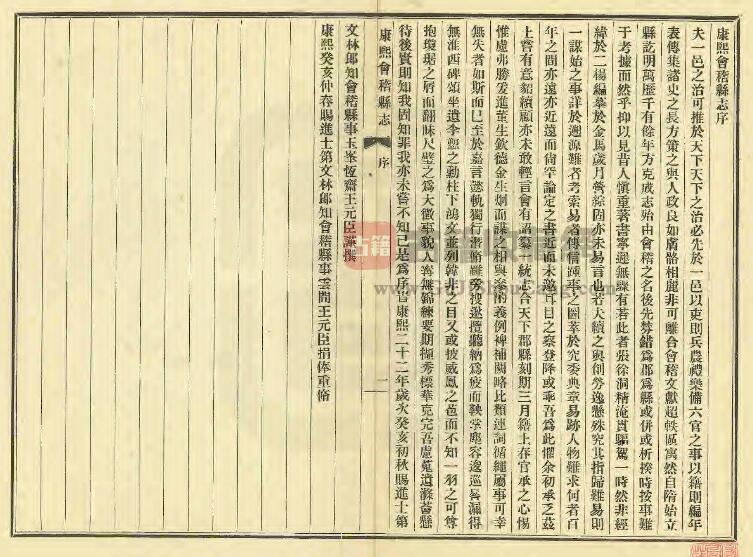 康熙會稽縣志序
夫一邑之治可推於天下天下之治必先於一邑以吏則兵農禮樂備六官之事以籍則編年
表傳集諸史之長方策之與人政良如膚骼相麗非可離合會稽文獻超軼區寓然自隋始立
縣訖明萬歷千有餘年方克成志殆由會稽之名後先棼錯為郡為縣或併或析揆時按事難
于考據而然乎抑以見昔人慎重著書寧遲無驟有若此者張徐洞精淹貫驅駕一時然非經
緯於二楊編摹於金馬歲月營綜固亦未易言也若夫續之與創勞逸懸殊究其指歸難易則
一謀始之事詳於遡源難者考索易者傳信踵事之圖萃於究委典章易跡人物難求何者百
年之間亦遠亦近遠而尚罕論定之書近而未邀耳目之察登降或乖吾為此懼余初承乏茲
上嘗有意紹續顧亦未敢輕言會有詔纂一統志合天下郡縣刻期三月籍上春官承之心惕
惟慮弗勝爰進董生欽德金生炯而謀之相與發的義例裨補闕略比類連詞循繩屬事可幸
無失者如斯而已至於嘉言懿軌獨行潛脩羅旁搜遐攬聽納為疲而鞅掌塵容逡巡晷漏得
無淮西碑頌坐遺李愬之勳柱下鴻文並列韓非之目又或披威鳳之苞而不知一羽之可尊
抱瓊琚之屑而翻昧尺璧之為大徵事貌人寄無歸練要期擷秀標華克完吾慮蒐遺滌薈懸
待後賢則知我固知罪我亦未嘗不知己是為序旹康熙二十二年歲次癸亥初秋賜進士第
康熙會稽縣志
序
一
文林郎知會稽縣事玉峯恆齋王元臣謹撰
康熙癸亥仲春賜進士第文林郎知會稽縣事雲間王元臣捐俸重脩
古籍